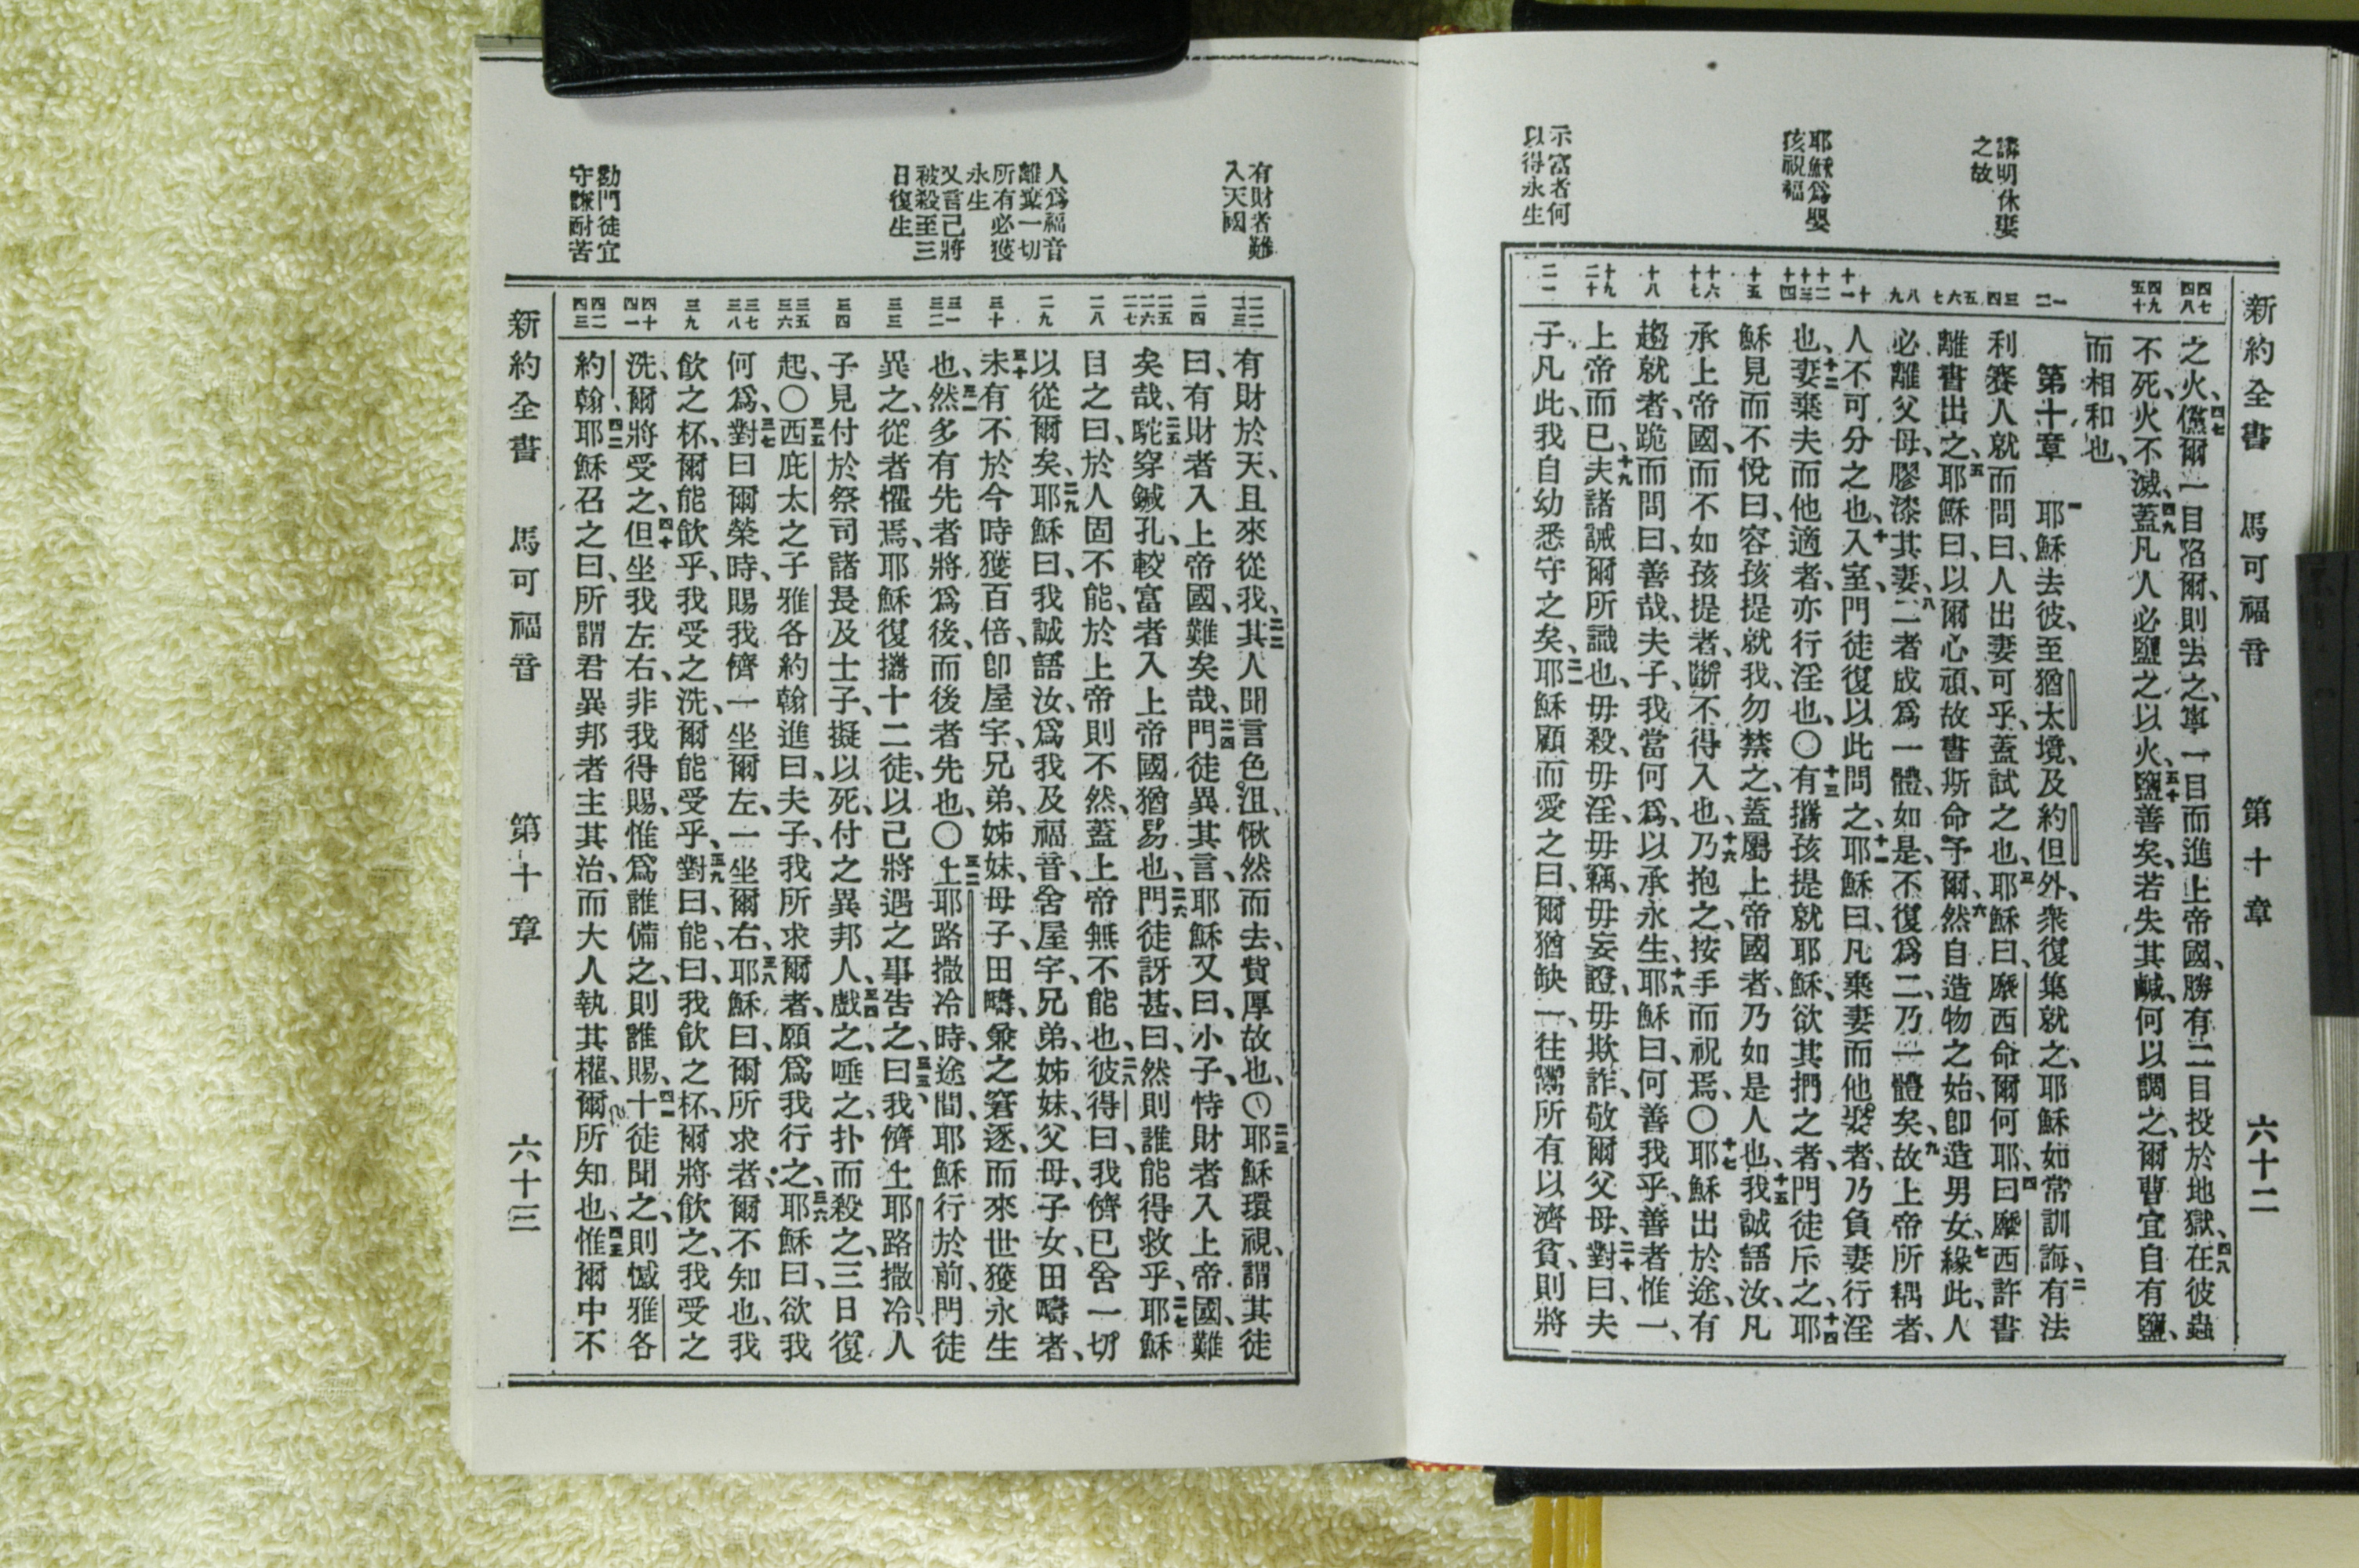 新約全書　馬可福音　第十章　六十二
講明休妻
之故
耶穌爲嬰
孩祝福
示富者何
以得永生
四七
四八
四九
五十
一
二
三
四
五
六
七
八
九
十
十一
十二
十三
十四
十五
十六
十七
十八
十九
二十
二一
之火、四七儻爾一目陷爾、則去之、寧一目而進上帝國、勝有二目投於地獄、四八在彼蟲
不死、火不滅、四九蓋凡人必鹽之以火、五十鹽善矣、若失其鹹、何以調之、爾曹宜自有鹽、
而相和也、
第十章　一耶穌去彼、至猶太境、及約但外、衆復集就之、耶穌如常訓誨、二有法
利賽人就而問曰、人出妻可乎、蓋試之也、三耶穌曰、摩西命爾何耶、四曰、摩西許書
離書出之、五耶穌曰、以爾心頑、故書斯命予爾、六然自造物之始、卽造男女、七緣此、人
必離父母、膠漆其妻、八二者成爲一體、如是、不復爲二、乃一體矣、九故上帝所耦者、
人不可分之也、十入室、門徒復以此問之、十一耶穌曰、凡棄妻而他娶者、乃負妻行淫
也、十二妻棄夫而他適者、亦行淫也、〇十三有攜孩提就耶穌、欲其捫之者、門徒斥之、十四耶
穌見而不悅曰、容孩提就我、勿禁之、蓋屬上帝國者、乃如是人也、十五我誠語汝、凡
承上帝國、而不如孩提者、斷不得入也、十六乃抱之、按手而祝焉、〇十七耶穌出於途、有
趨就者、跪而問曰、善哉夫子、我當何爲、以承永生、十八耶穌曰、何善我乎、善者惟一、
上帝而已、十九夫諸誡爾所識也、毋殺、毋淫、毋竊、毋妄證、毋欺詐、敬爾父母、二十對曰、夫
子、凡此、我自幼悉守之矣、二一耶穌顧而愛之曰、爾猶缺一、往鬻所有以濟貧、則將
有財者難
入天國
人爲福音
離棄一切
所有必獲
永生
又言己將
被殺至三
日復生
勸門徒宜
守謙耐苦
二二
二三
二四
二五
二六
二七
二八
二九
三十
三一
三二
三三
三四
三五
三六
三七
三八
三九
四十
四一
四二
四三
有財於天、且來從我、二二其人聞言色沮、愀然而去、貲厚故也、〇二三耶穌環視、謂其徒
曰、有財者入上帝國、難矣哉、二四門徒異其言、耶穌又曰、小子、恃財者入上帝國、難
矣哉、二五駝穿鍼孔、較富者入上帝國猶易也、二六門徒訝甚、曰、然則誰能得救乎、二七耶穌
目之曰、於人固不能、於上帝則不然、蓋上帝無不能也、二八彼得曰、我儕已舍一切
以從爾矣、二九耶穌曰、我誠語汝、爲我及福音、舍屋宇、兄弟、姊妹、父母、子女、田疇者、
三十未有不於今時獲百倍、卽屋宇、兄弟、姊妹、母子、田疇、兼之窘逐、而來世獲永生
也、三一然多有先者將爲後、而後者先也、〇三二上耶路撒冷時、途間、耶穌行於前、門徒
異之、從者懼焉、耶穌復攜十二徒、以己將遇之事告之、三三曰、我儕上耶路撒冷、人
子見付於祭司諸長及士子、擬以死、付之異邦人、三四戲之、唾之、扑而殺之、三日復
起、〇三五西庇太之子雅各約翰進曰、夫子、我所求爾者、願爲我行之、三六耶穌曰、欲我
何爲、三七對曰、爾榮時、賜我儕一坐爾左、一坐爾右、三八耶穌曰、爾所求者、爾不知也、我
飲之杯、爾能飲乎、我受之洗、爾能受乎、三九對曰、能、曰、我飲之杯、爾將飲之、我受之
洗、爾將受之、四十但坐我左右、非我得賜、惟爲誰備之、則誰賜、四一十徒聞之、則憾雅各
約翰、四二耶穌召之曰、所謂君異邦者主其治、而大人執其權、爾所知也、四三惟爾中不
新約全書　馬可福音　第十章　六十三